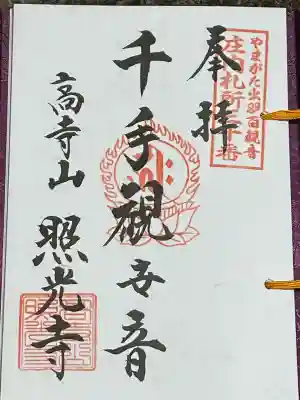 やまがた出羽百観音
庄内札所
奉拝
千手観世音
高寺山 照光寺